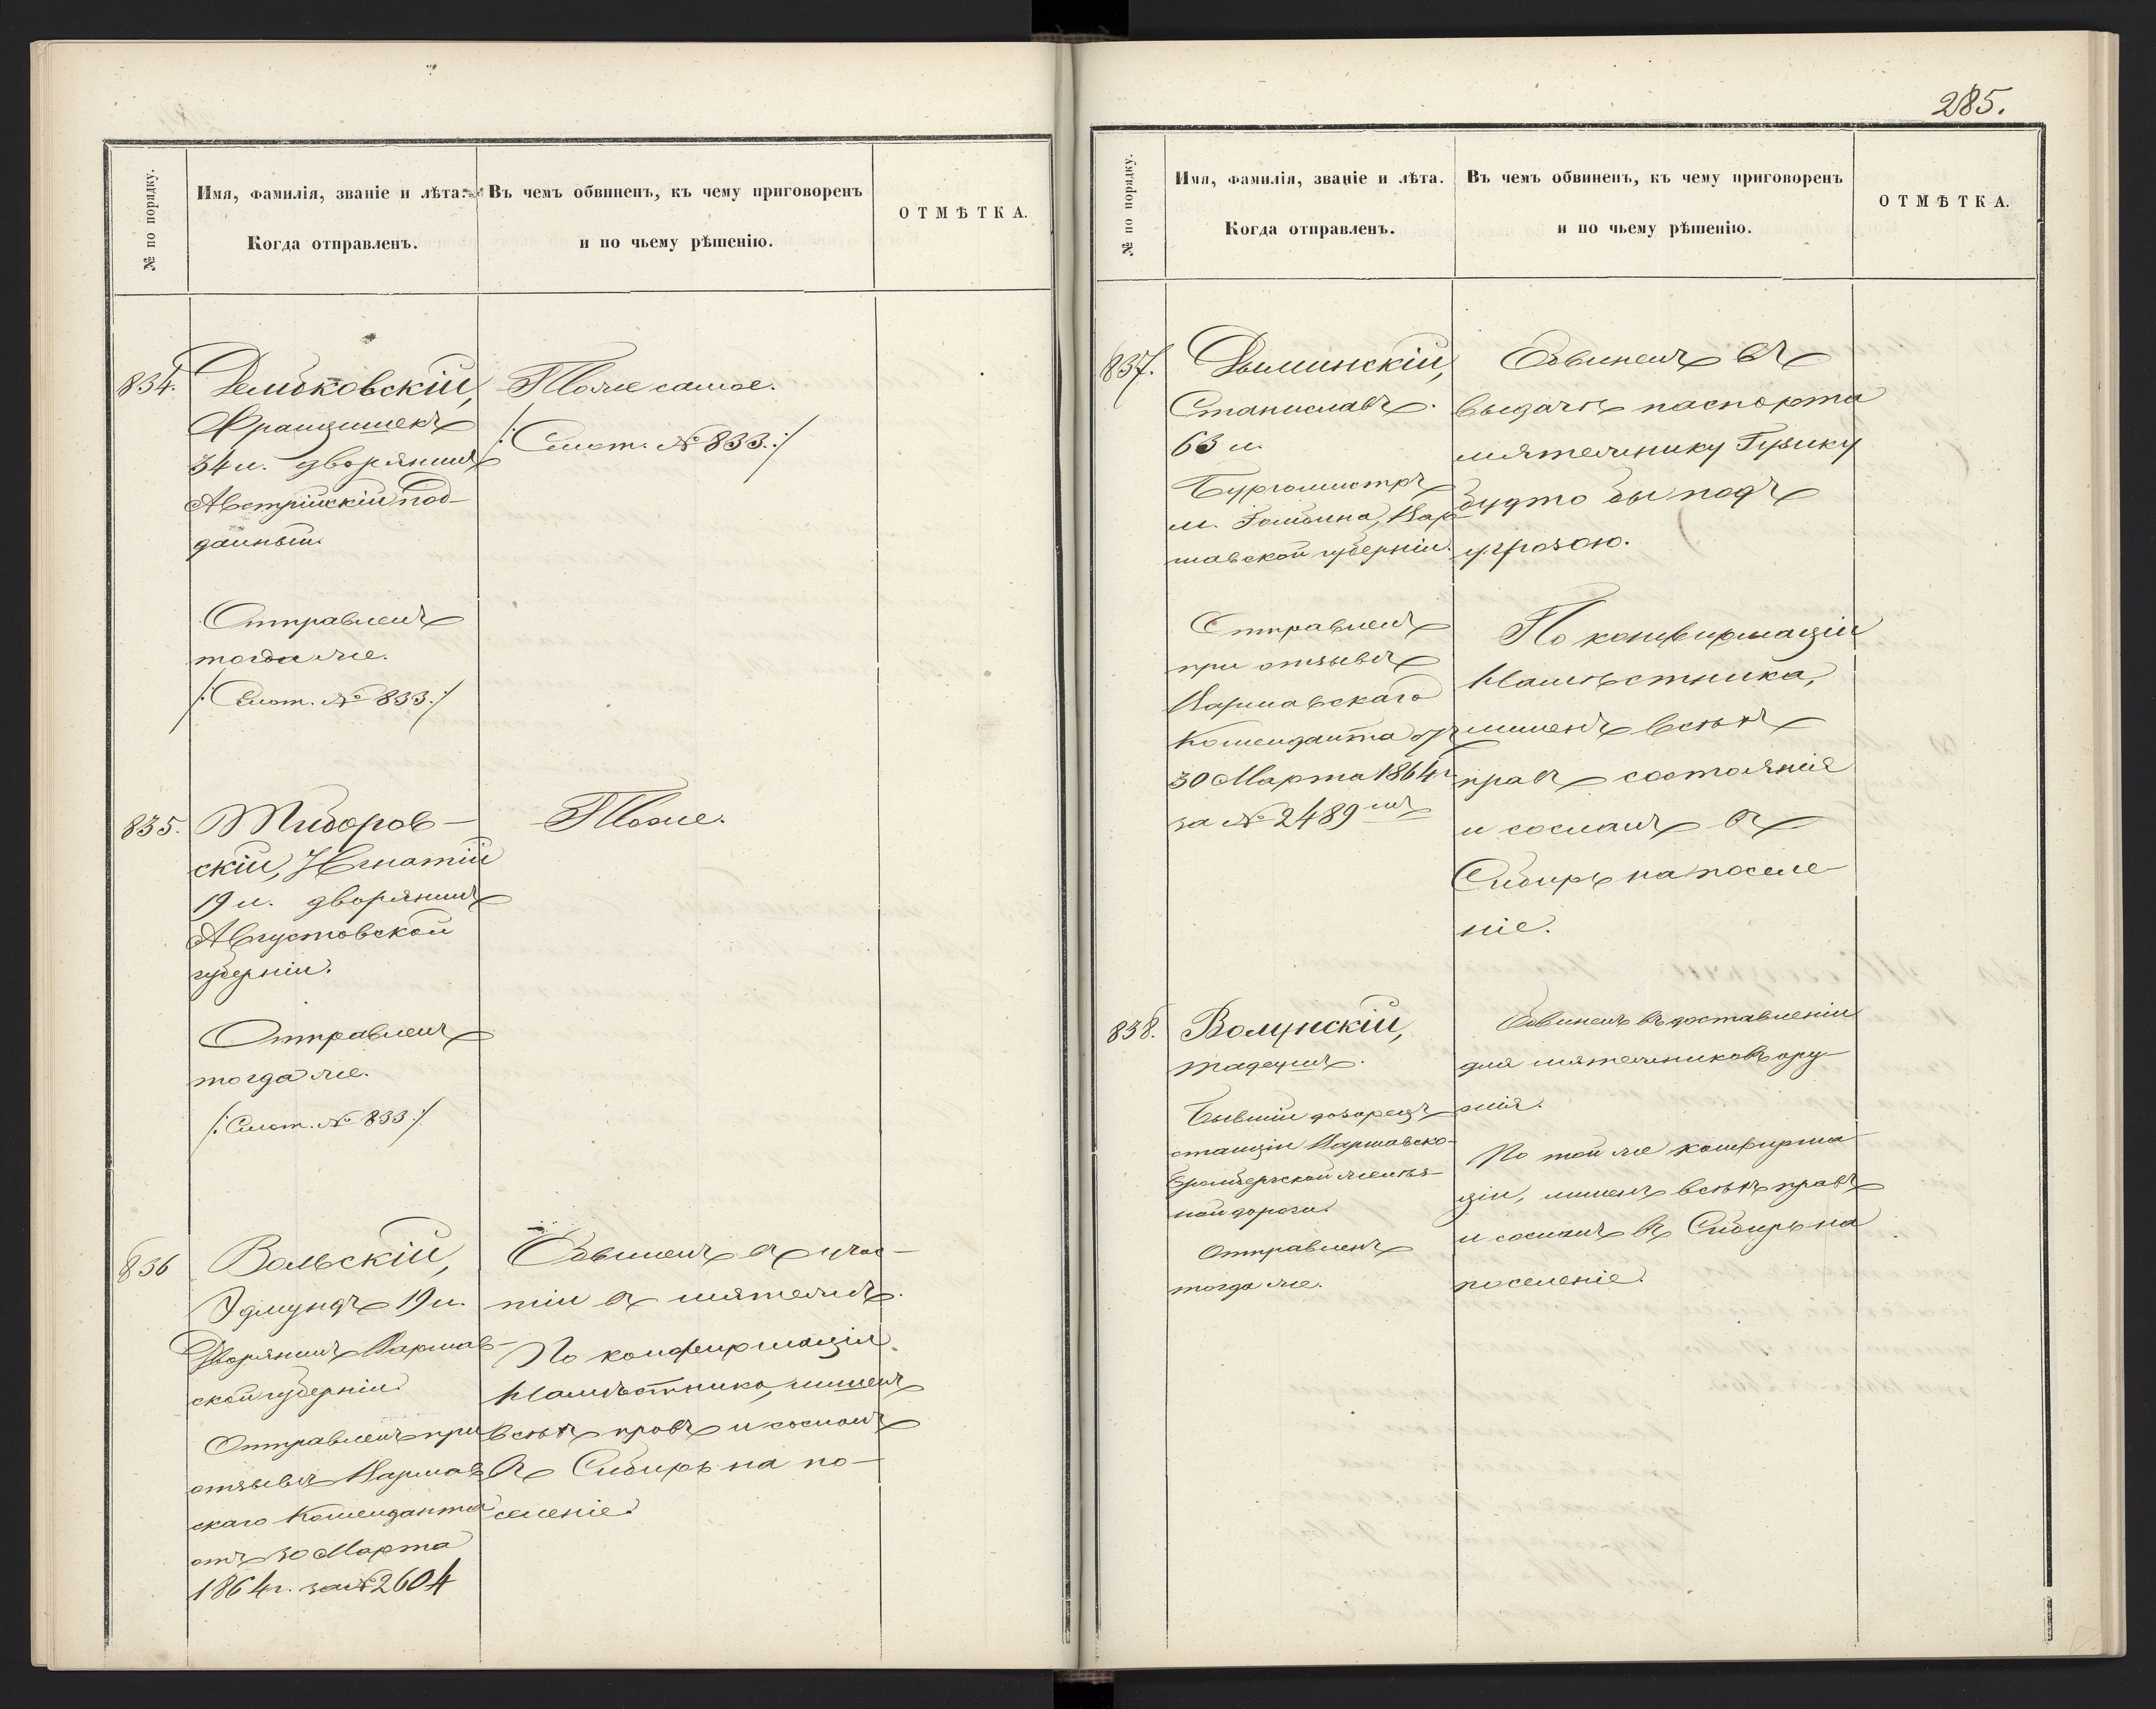 285.
№ по порядку.
Имя, фамилія, званіе и лѣта.
Когда отправленъ.
Въ чемъ обвиненъ, къ чему приговоренъ
и по чьему рѣшенію.
ОТМѢТКА.
834.
Дембковскій,
Францишекъ
34 л. дворянинъ
Австрійскій под-
данный.
Отправленъ
тогда же.
/: Смот. № 833. :/
Тоже самое.
/: Смот. № 833. :/
835.
Тиборов-
скій, Игнатій
19 л. дворянинъ
Августовской
губерніи.
Отправленъ
тогда же.
/: Смот. № 833 :/
Тоже.
836
Вольскій,
Эдмундъ 19 л.
Дворянинъ Варшав-
ской губерніи.
Отправленъ при
отзывѣ Варшав-
скаго Коменданта
отъ 30 Марта
1864 г. за № 2604
Обвиненъ въ учас-
тіи въ мятежѣ.
По конфирмаціи
Намѣстника, лишенъ
всѣхъ правъ и сосланъ
въ Сибирь на по-
селеніе.
№ по порядку.
Имя, фамилія, званіе и лѣта.
Когда отправленъ.
Въ чемъ обвиненъ, къ чему приговоренъ
и по чьему рѣшенію.
ОТМѢТКА.
837.
Дыминскій,
Станиславъ.
63 л.
Бургомистръ
м. Гомбина, Вар-
шавской губерніи.
Отправленъ
при отзывѣ
Варшавскаго
Коменданта отъ
30 Марта 1864 г.
за № 2489
Обвиненъ въ
выдачѣ паспорта
мятежнику Гузику
будто бы подъ
угрозою.
По конфирмаціи
Намѣстника,
лишенъ всѣхъ
правъ состоянія
и сосланъ въ
Сибирь на поселе-
ніе.
838.
Волунскій,
Тадеушъ.
Бывшій дозорецъ
станціи Варшавско-
Бромбергской желѣз-
ной дороги.
Отправленъ
тогда же.
Обвиненъ въ доставленіи
для мятежниковъ ору-
жія.
По той же конфирма-
ціи, лишенъ всѣхъ правъ
и сосланъ въ Сибирь на
поселеніе.